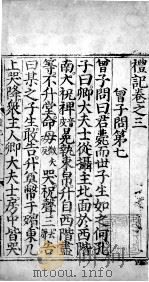 禮記卷之三
曾子問第七
曾子問曰君薨而世子生如之何孔
子曰卿大夫士從攝主北面於西階
南大祝裨冕執束帛升自西階盡
等不升堂命毋哭祝聲三告
曰某之子生敢告升奠幣于殯東几
上哭降衆主人卿大夫士房中皆哭